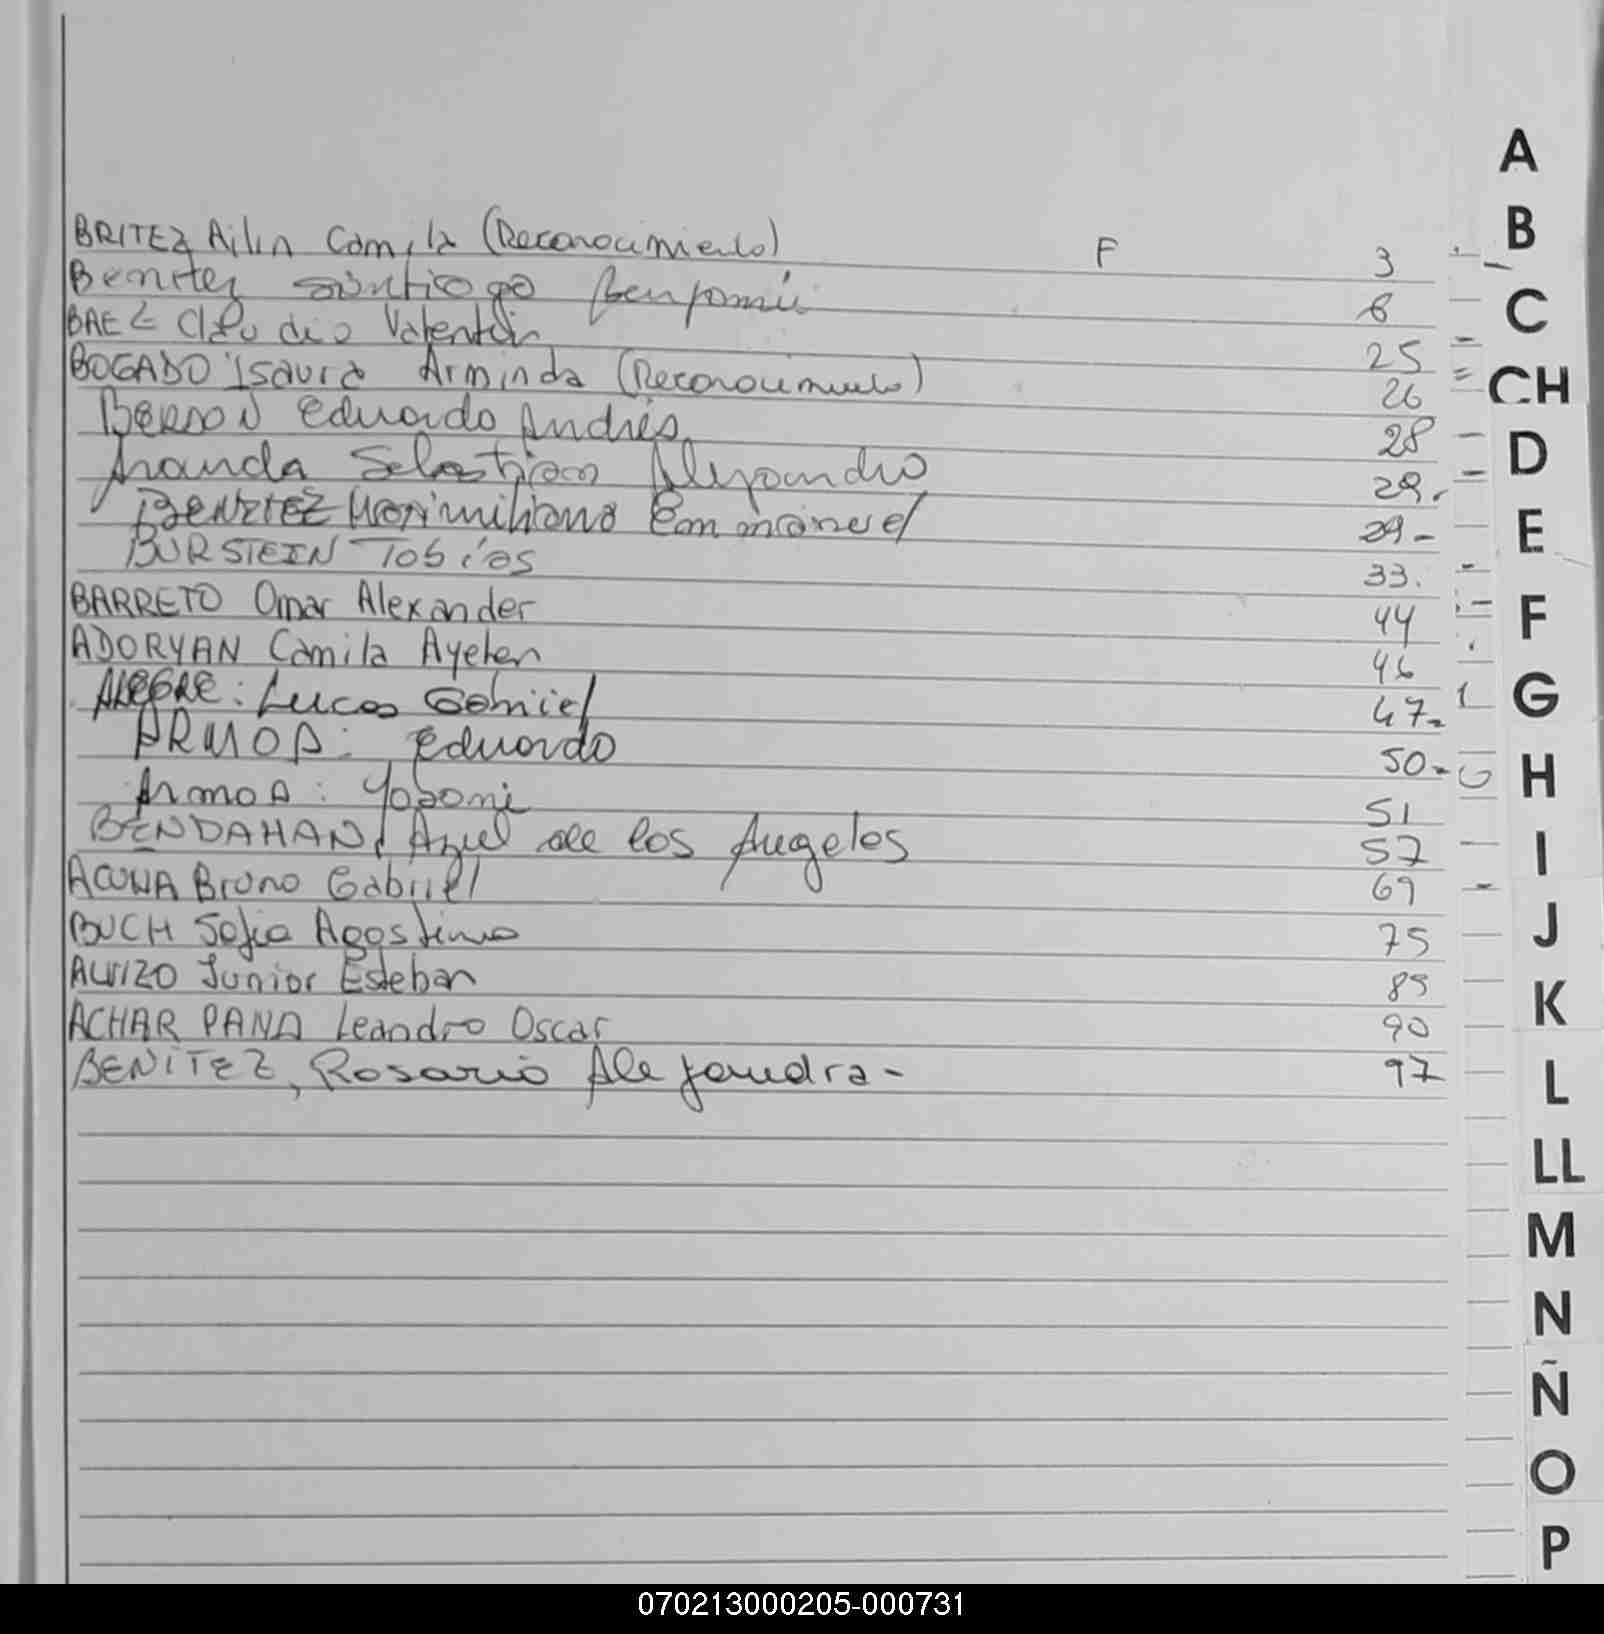 BRITEZ Ailin Camila (Reconocimiento) F 3
Benitez Santiago Benjamin 6
BAEZ Claudio Valentin 25
BOGADO Isaura Arminda (Reconocimiento) 26
BERDON Eduardo Andrés 28
Aranda Sebastian Alejandro 29.
BENITEZ Maximiliano Emmanuel 29-
BURSTEIN Tobías 33.
BARRETO Omar Alexander 44
ADORYAN Camila Ayelen 46
ALEGRE: Lucas Gabriel 47-
ARMOA: Eduardo 50-
Armoa: 51
BENDAHAN, Azul de los Angeles 57
ACUÑA Bruno Gabriel 69
BUCH Sofia Agostina 75
Junior Esteban 89
ACHAR PANA Leandro Oscar 90
BENITEZ, Rosario Alejandra- 97
A
B
C
CH
D
E
F
G
H
I
J
K
L
LL
M
N
Ñ
O
P
070213000205-000731